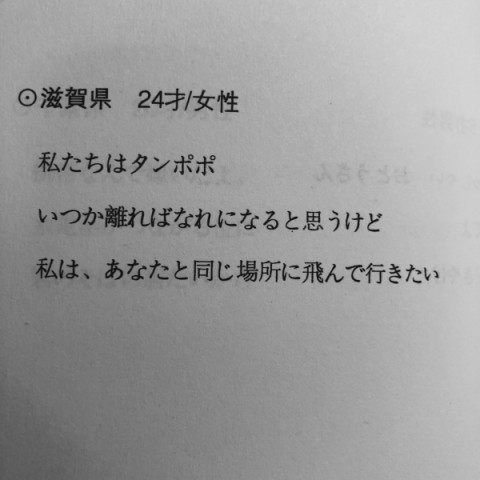 ⊙滋賀県 24才/女性
私たちはタンポポ
いつか離ればなれになると思うけど
私は、あなたと同じ場所に飛んで行きたい